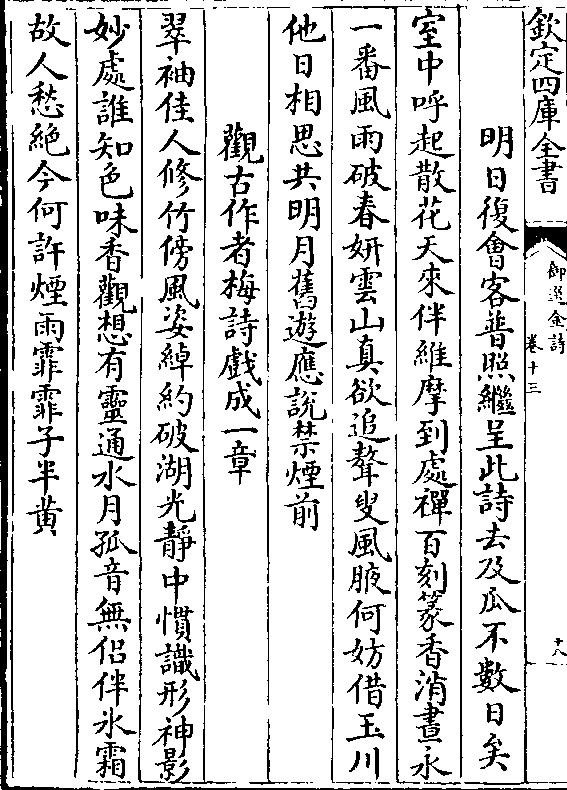 欽定四庫全書
御選金詩
卷十三
十八
明日復會客普照繼呈此詩去及瓜不數日矣
室中呼起散花天來伴維摩到處禪百刻篆香消晝永
一番風雨破春妍雲山真欲追聱叟風腋何妨借玉川
他日相思共明月舊遊應說禁煙前
觀古作者梅詩戲成一章
翠袖佳人修竹傍風姿綽約破湖光靜中慣識形神影
妙處誰知色味香觀想有靈通水月孤音無侶伴氷霜
故人愁絕今何許煙雨霏霏子半黄